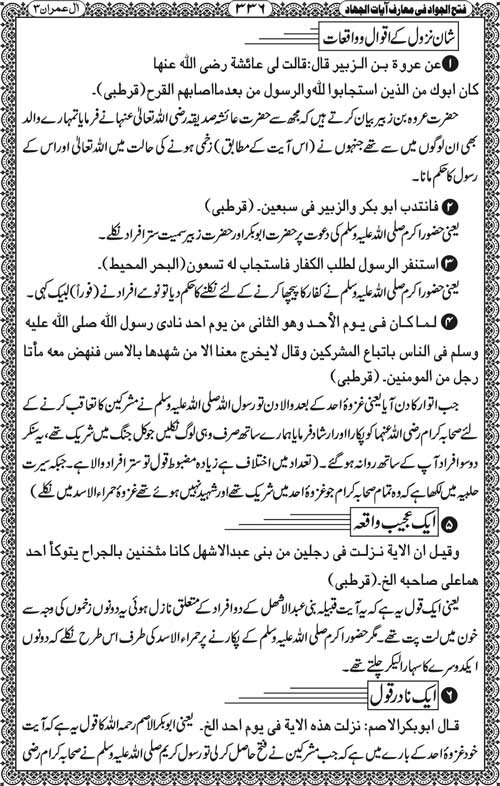 فتح الجواد فی معارف آیات الجهاد ۳۳۶ آل عمران ۳
شان نزول کے اقوال و واقعات
❶ عن عروة بن الزبیر قال: قالت لی عائشة رضی الله عنها
کان ابوک من الذین استجابوا لله والرسول من بعدما اصابهم القرح (قرطبی).
حضرت عروہ بن زبیر بیان کرتے ہیں کہ مجھ سے حضرت عائشہ صدیقہ رضی اللہ تعالیٰ عنہا نے فرمایا تمہارے والد
بھی ان لوگوں میں سے تھے جنہوں نے (اس آیت کے مطابق) زخمی ہونے کی حالت میں اللہ تعالیٰ اور اس کے
رسول کا حکم مانا۔
❷ فانتدب ابو بکر والزبیر فی سبعین. (قرطبی)
یعنی حضور اکرم صلی اللہ علیہ وسلم کی دعوت پر حضرت ابوبکر اور حضرت زبیر سمیت ستر افراد نکلے۔
❸ استنفر الرسول لطلب الکفار فاستجاب له تسعون (البحر المحیط).
یعنی حضور اکرم صلی اللہ علیہ وسلم نے کفار کا پیچھا کرنے کے لئے نکلنے کا حکم دیا تو نوے افراد نے (فوراً) لبیک کہی۔
❹ لما کان فی یوم الأحد وهو الثانی من یوم احد نادی رسول الله صلی الله علیه
وسلم فی الناس باتباع المشرکین وقال لایخرج معنا الا من شهدها بالامس فنهض معه مأتا
رجل من المومنین. (قرطبی)
جب اتوار کا دن آیا یعنی غزوۂ احد کے بعد والا دن تو رسول اللہ صلی اللہ علیہ وسلم نے مشرکین کا تعاقب کرنے کے
لئے صحابہ کرام رضی اللہ عنہم کو پکارا اور ارشاد فرمایا ہمارے ساتھ صرف وہی لوگ نکلیں جو کل جنگ میں شریک تھے، یہ سنکر
دو سو افراد آپ کے ساتھ روانہ ہوگئے۔ (تعداد میں اختلاف ہے زیادہ مضبوط قول تو ستر افراد والا ہے۔ جبکہ سیرت
حلبیہ میں لکھا ہے کہ وہ تمام صحابہ کرام جو غزوۂ احد میں شریک تھے اور شہید نہیں ہوئے تھے غزوۂ حمراء الاسد میں نکلے)
❺ ایک عجیب واقعہ
وقیل ان الایة نزلت فی رجلین من بنی عبدالاشهل کانا مثخنین بالجراح یتوکأ احد
هما علی صاحبه الخ. (قرطبی)
یعنی ایک قول یہ ہے کہ یہ آیت قبیلہ بنی عبدالاشھل کے دو افراد کے متعلق نازل ہوئی یہ دونوں زخموں کی وجہ سے
خون میں لت پت تھے۔ مگر حضور اکرم صلی اللہ علیہ وسلم کے پکارنے پر حمراء الاسد کی طرف اس طرح نکلے کہ دونوں
ایکدوسرے کا سہارا لیکر چلتے تھے۔
❻ ایک نادر قول
قال ابوبکر الاصم: نزلت هذه الایة فی یوم احد الخ. یعنی ابوبکر الاصم رحمہ اللہ کا قول یہ ہے کہ آیت
خود غزوۂ احد کے بارے میں ہے کہ جب مشرکین نے فتح حاصل کر لی تو رسول کریم صلی اللہ علیہ وسلم نے صحابہ کرام رضی